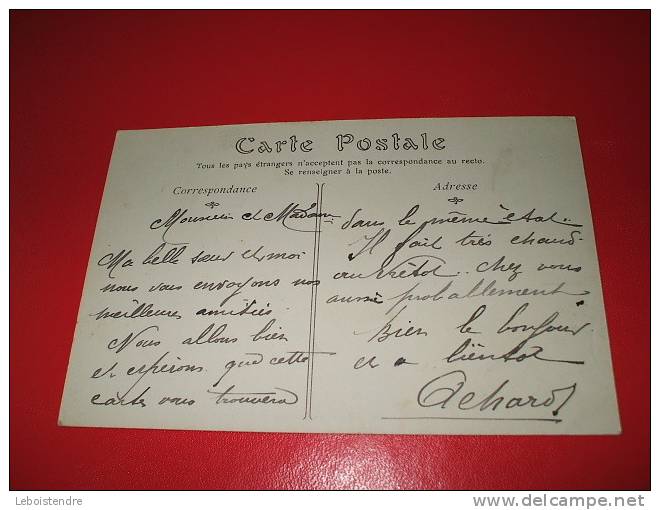 Carte Postale
Tous les pays étrangers n'acceptent pas la correspondance au recto.
Se renseigner à la poste.
Correspondance
Monsieur et Madame
Ma belle sœur et moi
nous vous envoyons nos
meilleures amitiés.
Nous allons bien
et espérons que cette
carte vous trouvera
Adresse
dans le même état.
Il fait très chaud
chez vous
aussi proballement
Bien le bonjour
et a bientot
Achard
Leboistendre
delcampe.net